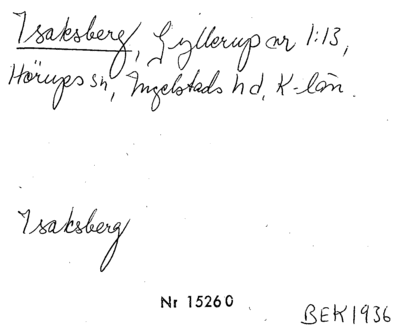 Isaksberg, Gyllerup ar 1:13,
Hörups sn, Ingelstads hd, K-län.
Isaksberg
Nr 15260
BEK1936